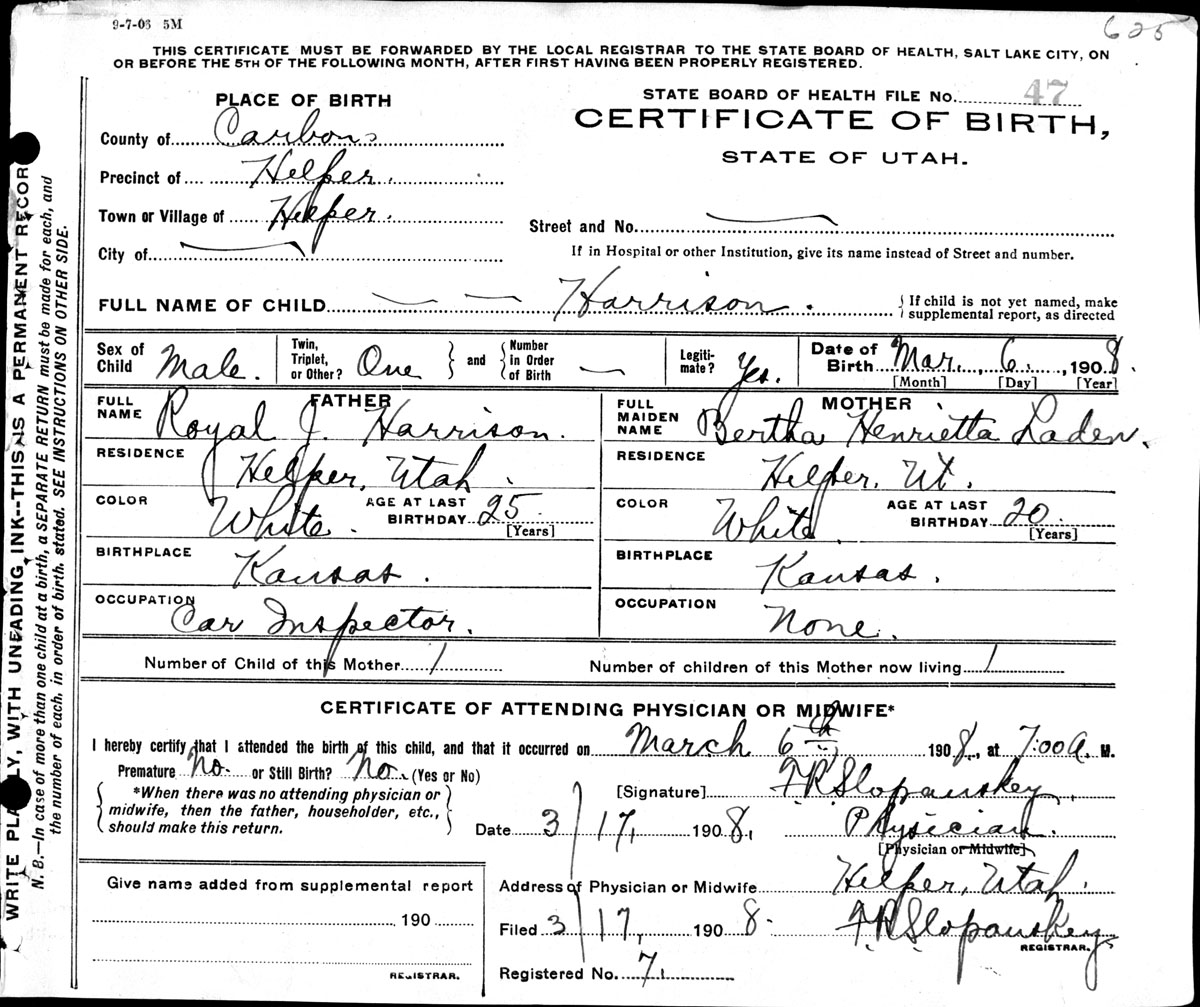 9-7-03 5M
625
THIS CERTIFICATE MUST BE FORWARDED BY THE LOCAL REGISTRAR TO THE STATE BOARD OF HEALTH, SALT LAKE CITY, ON
OR BEFORE THE 5TH OF THE FOLLOWING MONTH, AFTER FIRST HAVING BEEN PROPERLY REGISTERED.
PLACE OF BIRTH
County of Carbon
Precinct of Helper.
Town or Village of Helper.
City of
STATE BOARD OF HEALTH FILE No. 47
CERTIFICATE OF BIRTH,
STATE OF UTAH.
Street and No.
If in Hospital or other Institution, give its name instead of Street and number.
FULL NAME OF CHILD — — Harrison.
If child is not yet named, make
supplemental report, as directed
Sex of Child Male.
Twin, Triplet, or Other? One and Number in Order of Birth —
Legitimate? Yes.
Date of Birth Mar. 6. 1908.
[Month] [Day] [Year]
FATHER
FULL NAME Royal J. Harrison.
RESIDENCE Helper, Utah.
COLOR White. AGE AT LAST BIRTHDAY 25 [Years]
BIRTHPLACE Kansas.
OCCUPATION Car Inspector.
MOTHER
FULL MAIDEN NAME Bertha Henrietta Laden.
RESIDENCE Helper, Ut.
COLOR White. AGE AT LAST BIRTHDAY 20. [Years]
BIRTHPLACE Kansas.
OCCUPATION None.
Number of Child of this Mother 1 Number of children of this Mother now living 1
CERTIFICATE OF ATTENDING PHYSICIAN OR MIDWIFE*
I hereby certify that I attended the birth of this child, and that it occurred on March 6th 1908, at 7:00 A. M.
Premature No. or Still Birth? No. (Yes or No)
*When there was no attending physician or
midwife, then the father, householder, etc.,
should make this return.
[Signature] F.R. Slopanskey.
Date 3/17, 1908, Physician.
[Physician or Midwife]
Address of Physician or Midwife Helper, Utah.
Filed 3/17, 1908. F.R. Slopanskey
REGISTRAR.
Registered No. 7.
Give name added from supplemental report
190
REGISTRAR.
WRITE PLAINLY, WITH UNFADING INK--THIS IS A PERMANENT RECOR
N. B.—In case of more than one child at a birth, a SEPARATE RETURN must be made for each, and
the number of each, in order of birth, stated. SEE INSTRUCTIONS ON OTHER SIDE.